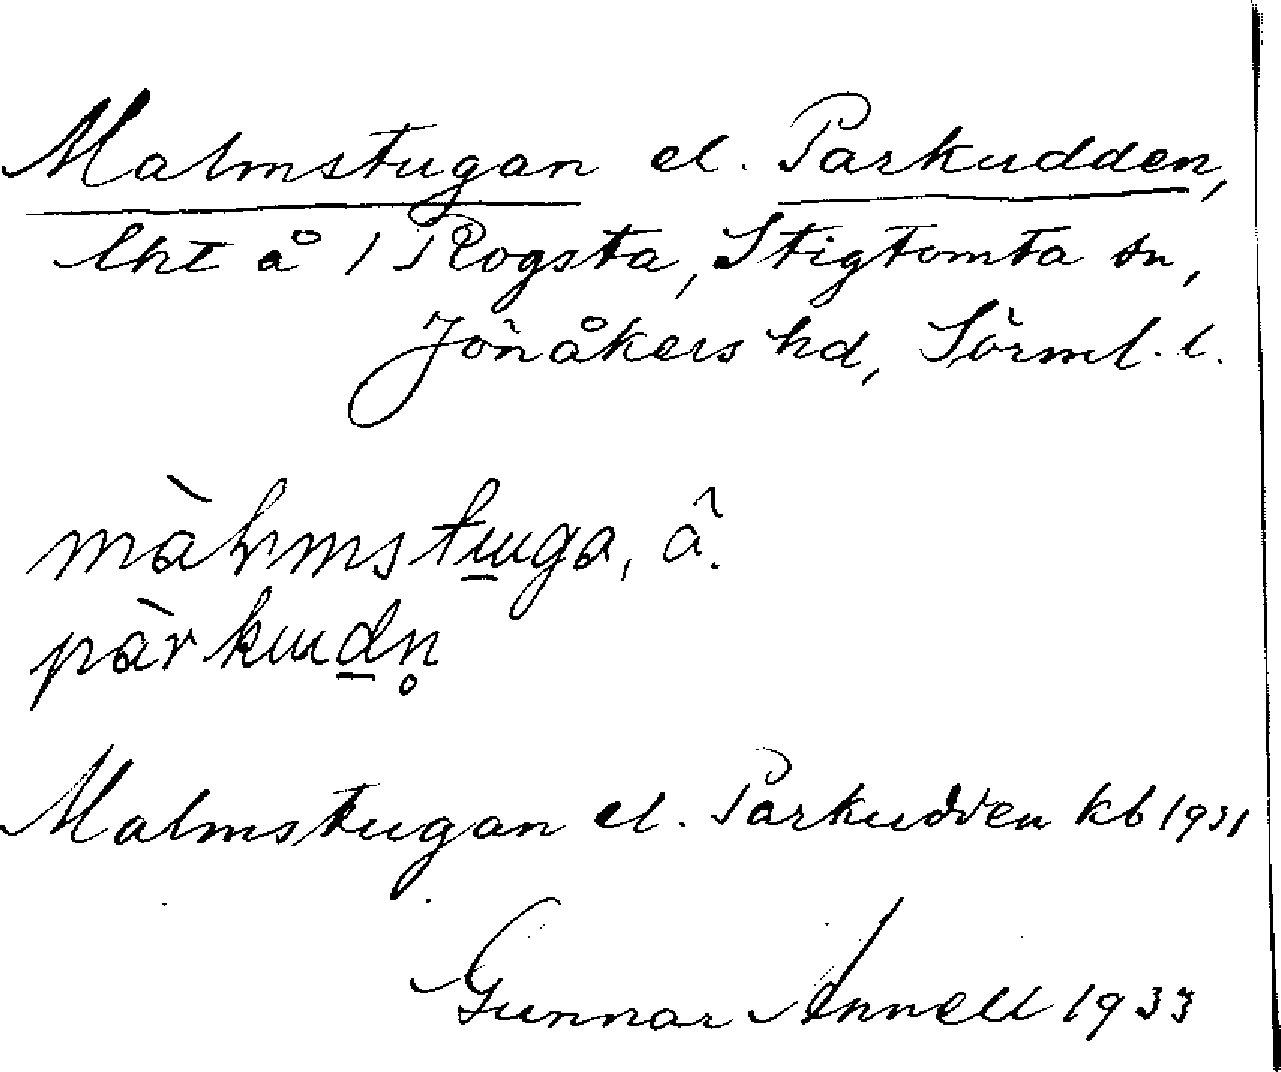 Malmstugan el. Parkudden,
lht å 1 Rogsta, Stigtomta sn,
Jönåkers hd, Sörml. l.
màlmstuga, â.
pàrkudn̥
Malmstugan el. Parkudden kb 1931
Gunnar Annell 1933